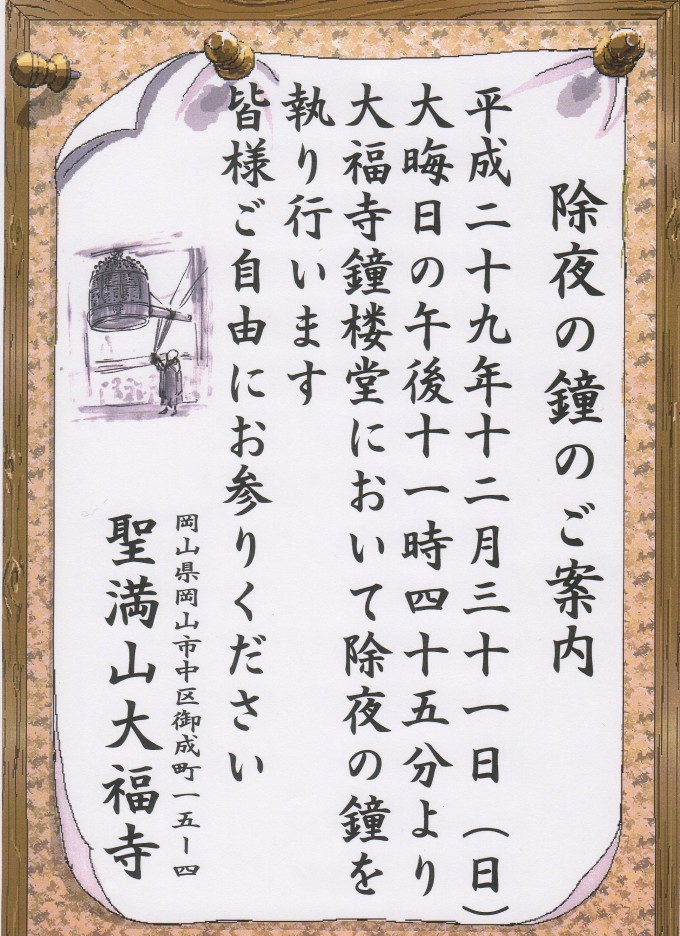 除夜の鐘のご案内
平成二十九年十二月三十一日（日）
大晦日の午後十一時四十五分より
大福寺鐘楼堂において除夜の鐘を
執り行います
皆様ご自由にお参りください
岡山県岡山市中区御成町一五ー四
聖満山大福寺